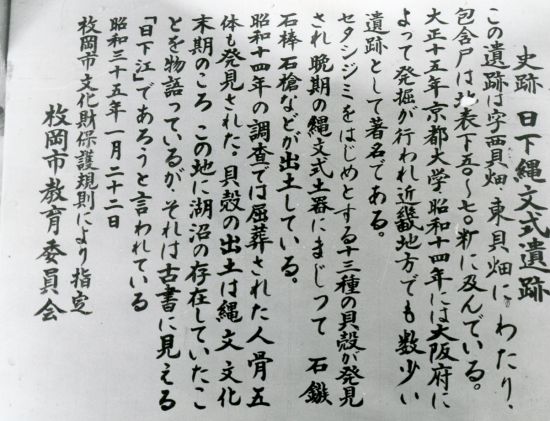 史跡 日下縄文式遺跡
この遺跡は字西貝畑、東貝畑にわたり、
包含層は地表下五〇〜七〇糎に及んでいる。
大正十五年京都大学昭和十四年には大阪府に
よって発掘が行われ近畿地方でも数少い
遺跡として著名である。
セタシジミをはじめとする十三種の貝殻が発見
され晩期の縄文式土器にまじって 石鏃
石棒石槍などが出土している。
昭和十四年の調査では屈葬された人骨五
体も発見された。貝殻の出土は縄文文化
末期のころ この地に湖沼の存在していたこ
とを物語っているが それは古書に見える
「日下江」であろうと言われている
昭和三十五年一月二十二日
枚岡市文化財保護規則により指定
枚岡市教育委員会